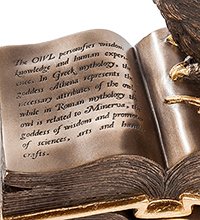 The OWL personifies wisdom,
knowledge and human exper
ence. In Greek mythology, the
goddess Athena represents the
necessary attributes of the owl
while in Roman mythology the
owl is related to Minerva, the
goddess of wisdom and promo
of sciences, arts and hum
crafts.